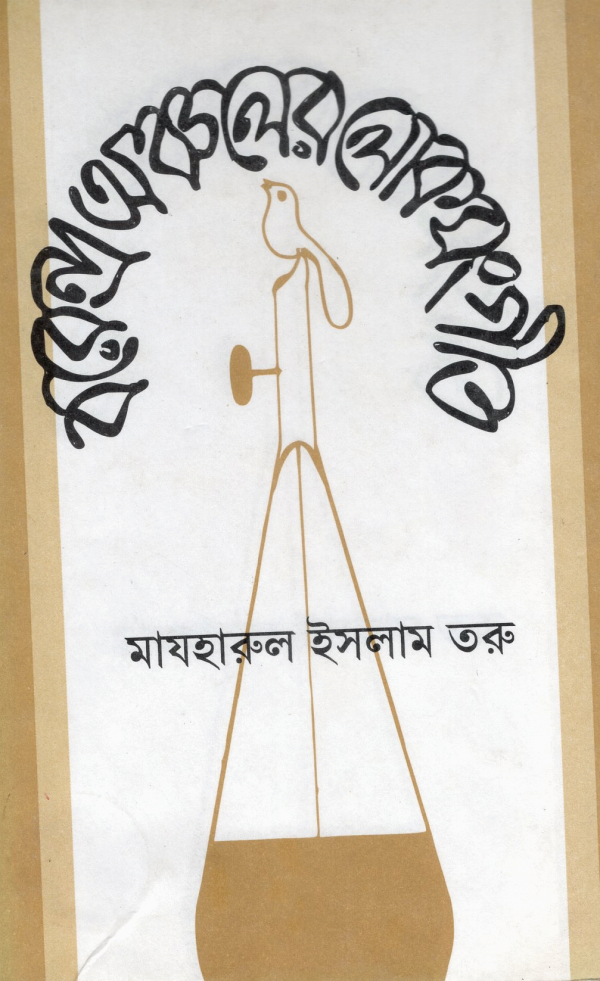 বরেন্দ্র অঞ্চলের লোকসংগীত
মাযহারুল ইসলাম তরু